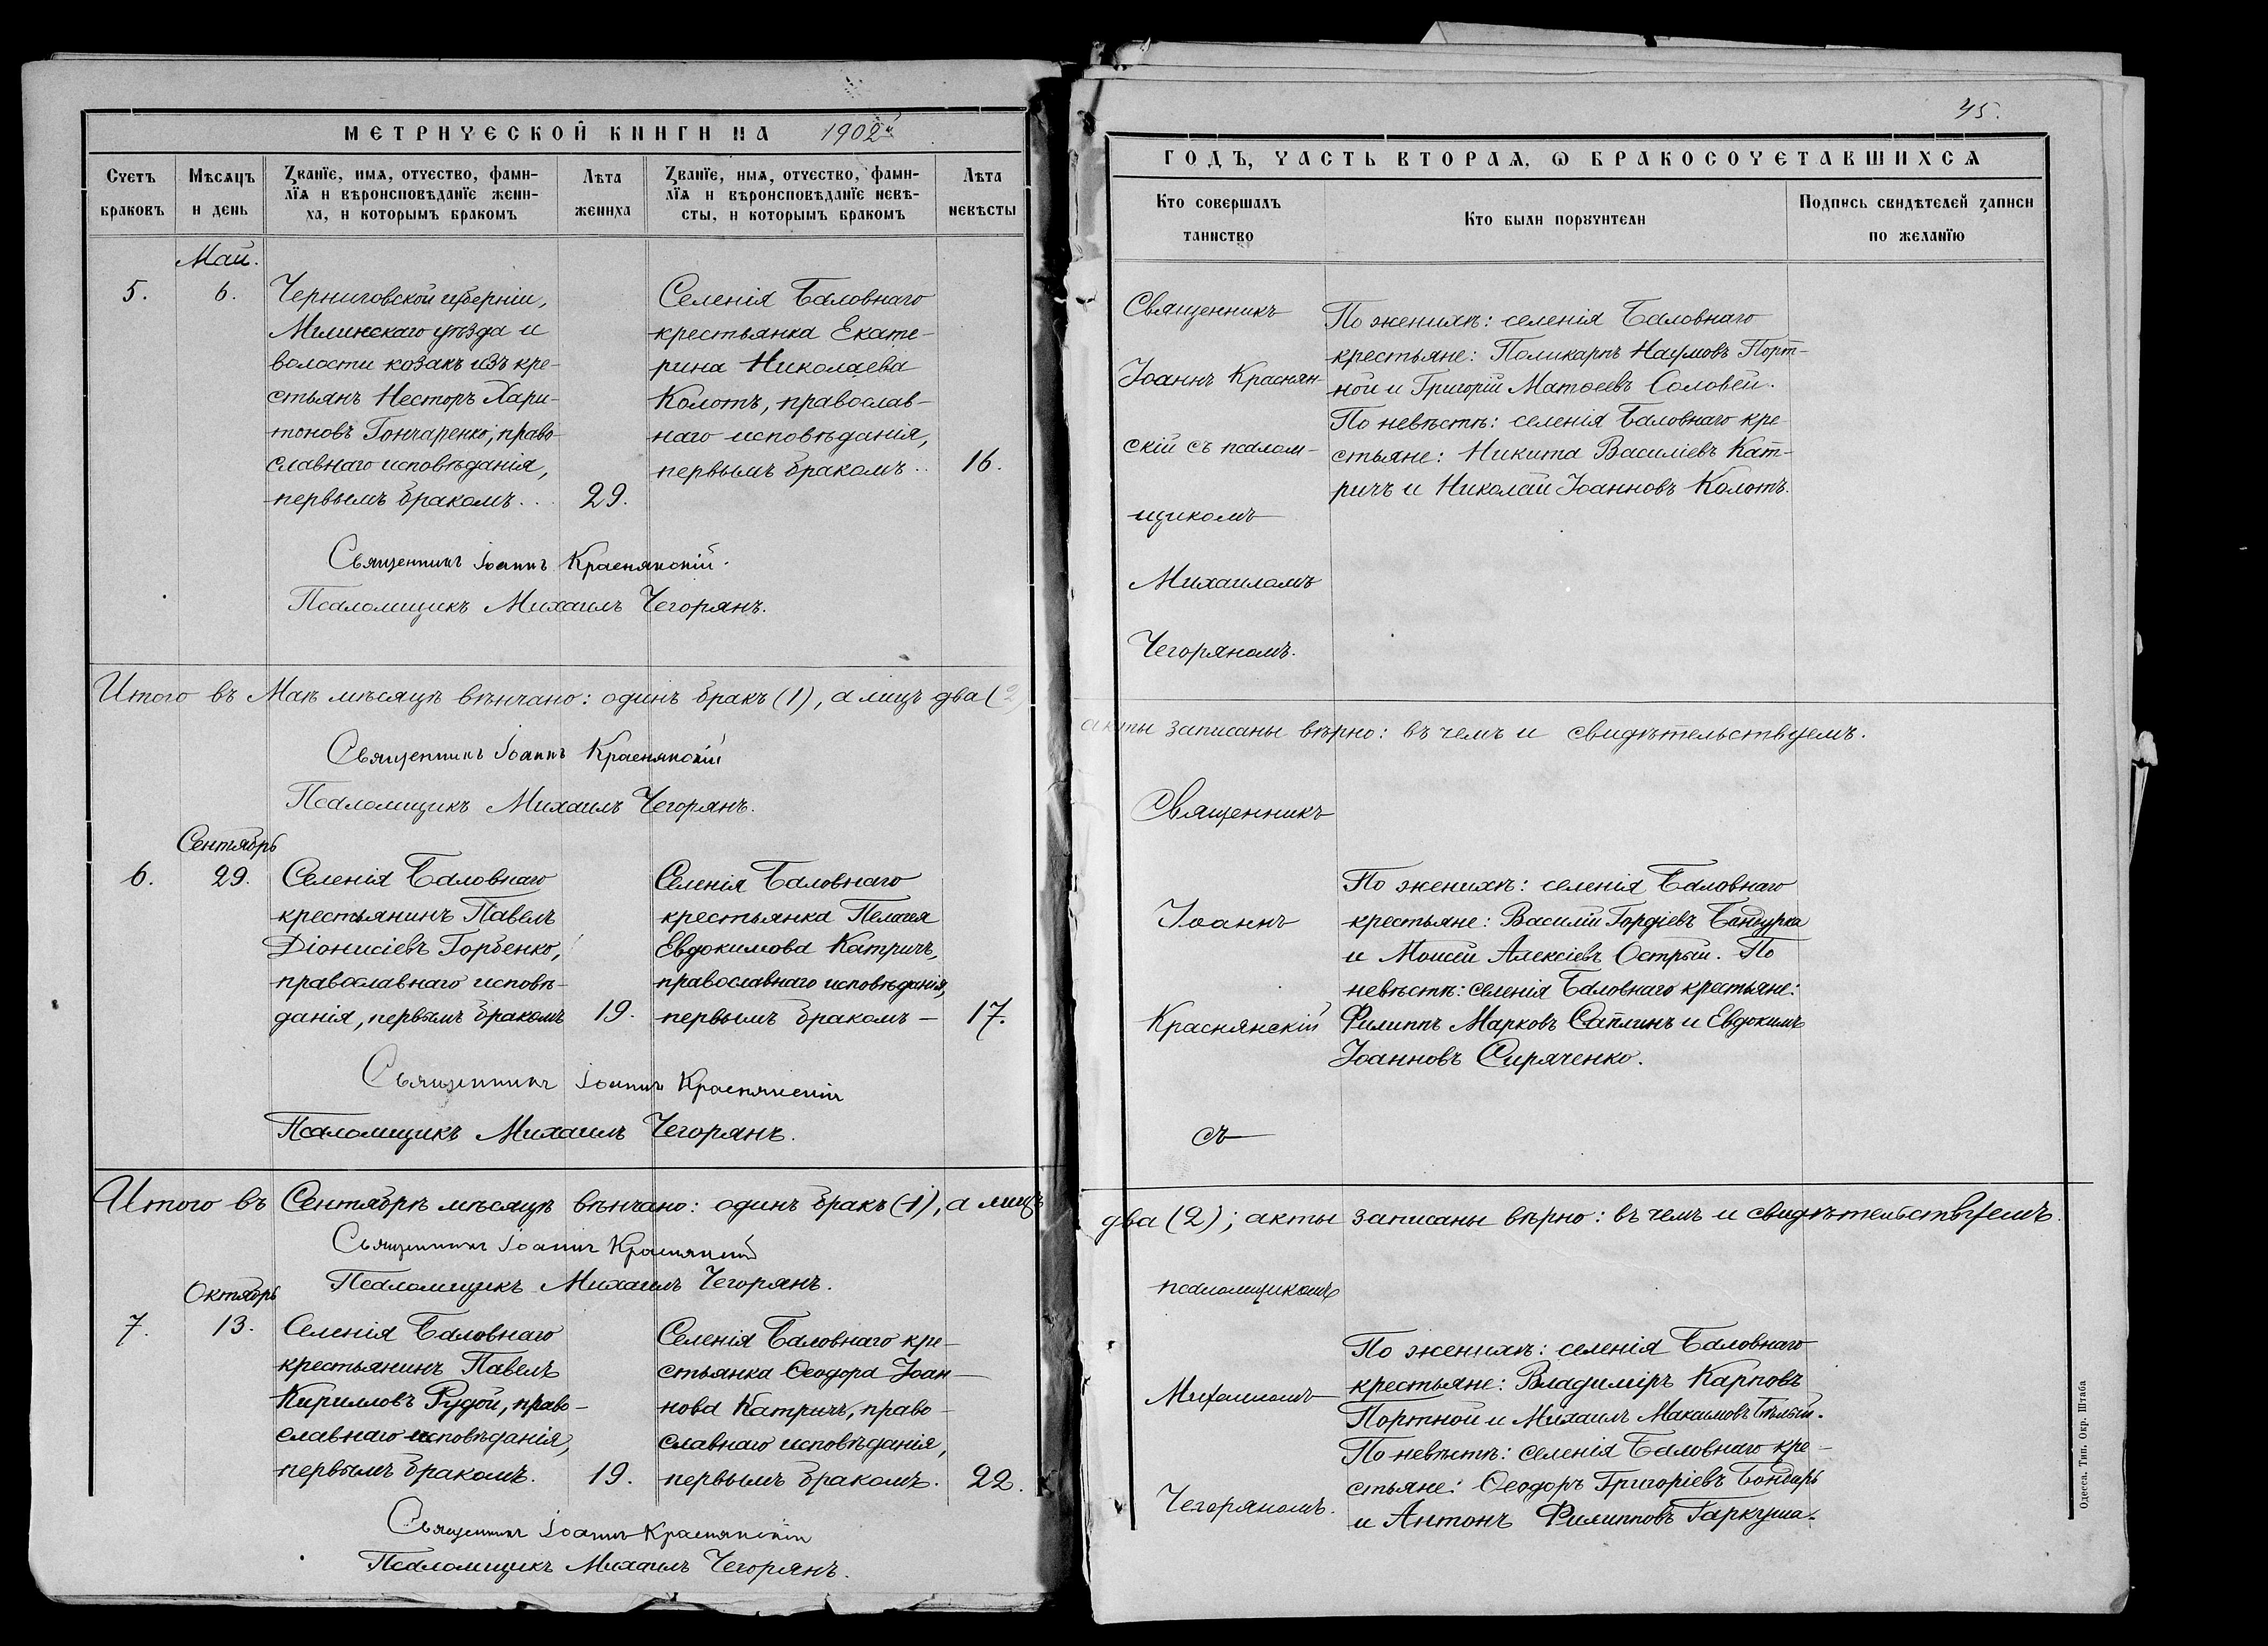 МЕТРИЧЕСКОЙ КНИГИ НА 1902й
Счетъ браковъ
Мѣсяцъ и день
Званїе, имѧ, отчество, фами-
лїѧ и вѣроисповѣданїе жени-
ха, и которымъ бракомъ
Лѣта жениха
Званїе, имѧ, отчество, фами-
лїѧ и вѣроисповѣданїе невѣ-
сты, и которымъ бракомъ
Лѣта невѣсты
Май.
5.
6.
Черниговской губерніи,
Мглинскаго уѣзда и
волости козакъ изъ кре-
стьянъ Несторъ Хари-
тоновъ Гончаренко, право-
славнаго исповѣданія,
первымъ бракомъ...
29.
Селенія Баловнаго
крестьянка Екате-
рина Николаева
Колотъ, православ-
наго исповѣданія,
первымъ бракомъ..
16.
Священникъ Іоаннъ Краснянскій.
Псаломщикъ Михаилъ Чегорянъ.
Итого въ Маѣ мѣсяцѣ вѣнчано: одинъ бракъ (1), а лицъ два (2)
Священникъ Іоаннъ Краснянскій
Псаломщикъ Михаилъ Чегорянъ.
Сентябрь
6.
29.
Селенія Баловнаго
крестьянинъ Павелъ
Діонисіевъ Горбенко,
православнаго исповѣ-
данія, первымъ бракомъ
19.
Селенія Баловнаго
крестьянка Пелагея
Евдокимова Катричъ,
православнаго исповѣданія,
первымъ бракомъ —
17.
Священникъ Іоаннъ Краснянскій
Псаломщикъ Михаилъ Чегорянъ.
Итого въ Сентябрѣ мѣсяцѣ вѣнчано: одинъ бракъ (1), а лицъ
Священникъ Іоаннъ Краснянскій
Псаломщикъ Михаилъ Чегорянъ.
Октябрь
7.
13.
Селенія Баловнаго
крестьянинъ Павелъ
Кирилловъ Рудой, право-
славнаго исповѣданія,
первымъ бракомъ.
19.
Селенія Баловнаго кре-
стьянка Ѳеодора Іоан-
нова Катричъ, право-
славнаго исповѣданія,
первымъ бракомъ.
22.
Священникъ Іоаннъ Краснянскій
Псаломщикъ Михаилъ Чегорянъ.
45.
ГОДЪ, ЧАСТЬ ВТОРАѦ, Ѡ БРАКОСОЧЕТАВШИХСѦ
Кто совершалъ таинство
Кто были порꙋчители
Подпись свидѣтелей записи по желанїю
Священникъ
Іоаннъ Краснян-
скій съ псалом-
щикомъ
Михаиломъ
Чегоряномъ.
По женихѣ: селенія Баловнаго
крестьяне: Поликарпъ Наумовъ Порт-
ной и Григорій Матѳеевъ Соловей.
По невѣстѣ: селенія Баловнаго кре-
стьяне: Никита Василіевъ Кат-
ричъ и Николай Іоанновъ Колотъ.
акты записаны вѣрно: въ чемъ и свидѣтельствуемъ.
Священникъ
Іоаннъ
Краснянскій
съ
По женихѣ: селенія Баловнаго
крестьяне: Василій Гордіевъ Бандурка
и Моисей Алексіевъ Острый. По
невѣстѣ: селенія Баловнаго крестьяне:
Филиппъ Марковъ Саплинъ и Евдокимъ
Іоанновъ Сиряченко.
два (2); акты записаны вѣрно: въ чемъ и свидѣтельствуемъ.
псаломщикомъ
Михаиломъ
Чегоряномъ.
По женихѣ: селенія Баловнаго
крестьяне: Владиміръ Карповъ
Портной и Михаилъ Максимовъ Бѣлый.
По невѣстѣ: селенія Баловнаго кре-
стьяне: Ѳеодоръ Григоріевъ Бондарь
и Антонъ Филипповъ Гаркуша.
Одесса. Тип. Окр. Штаба